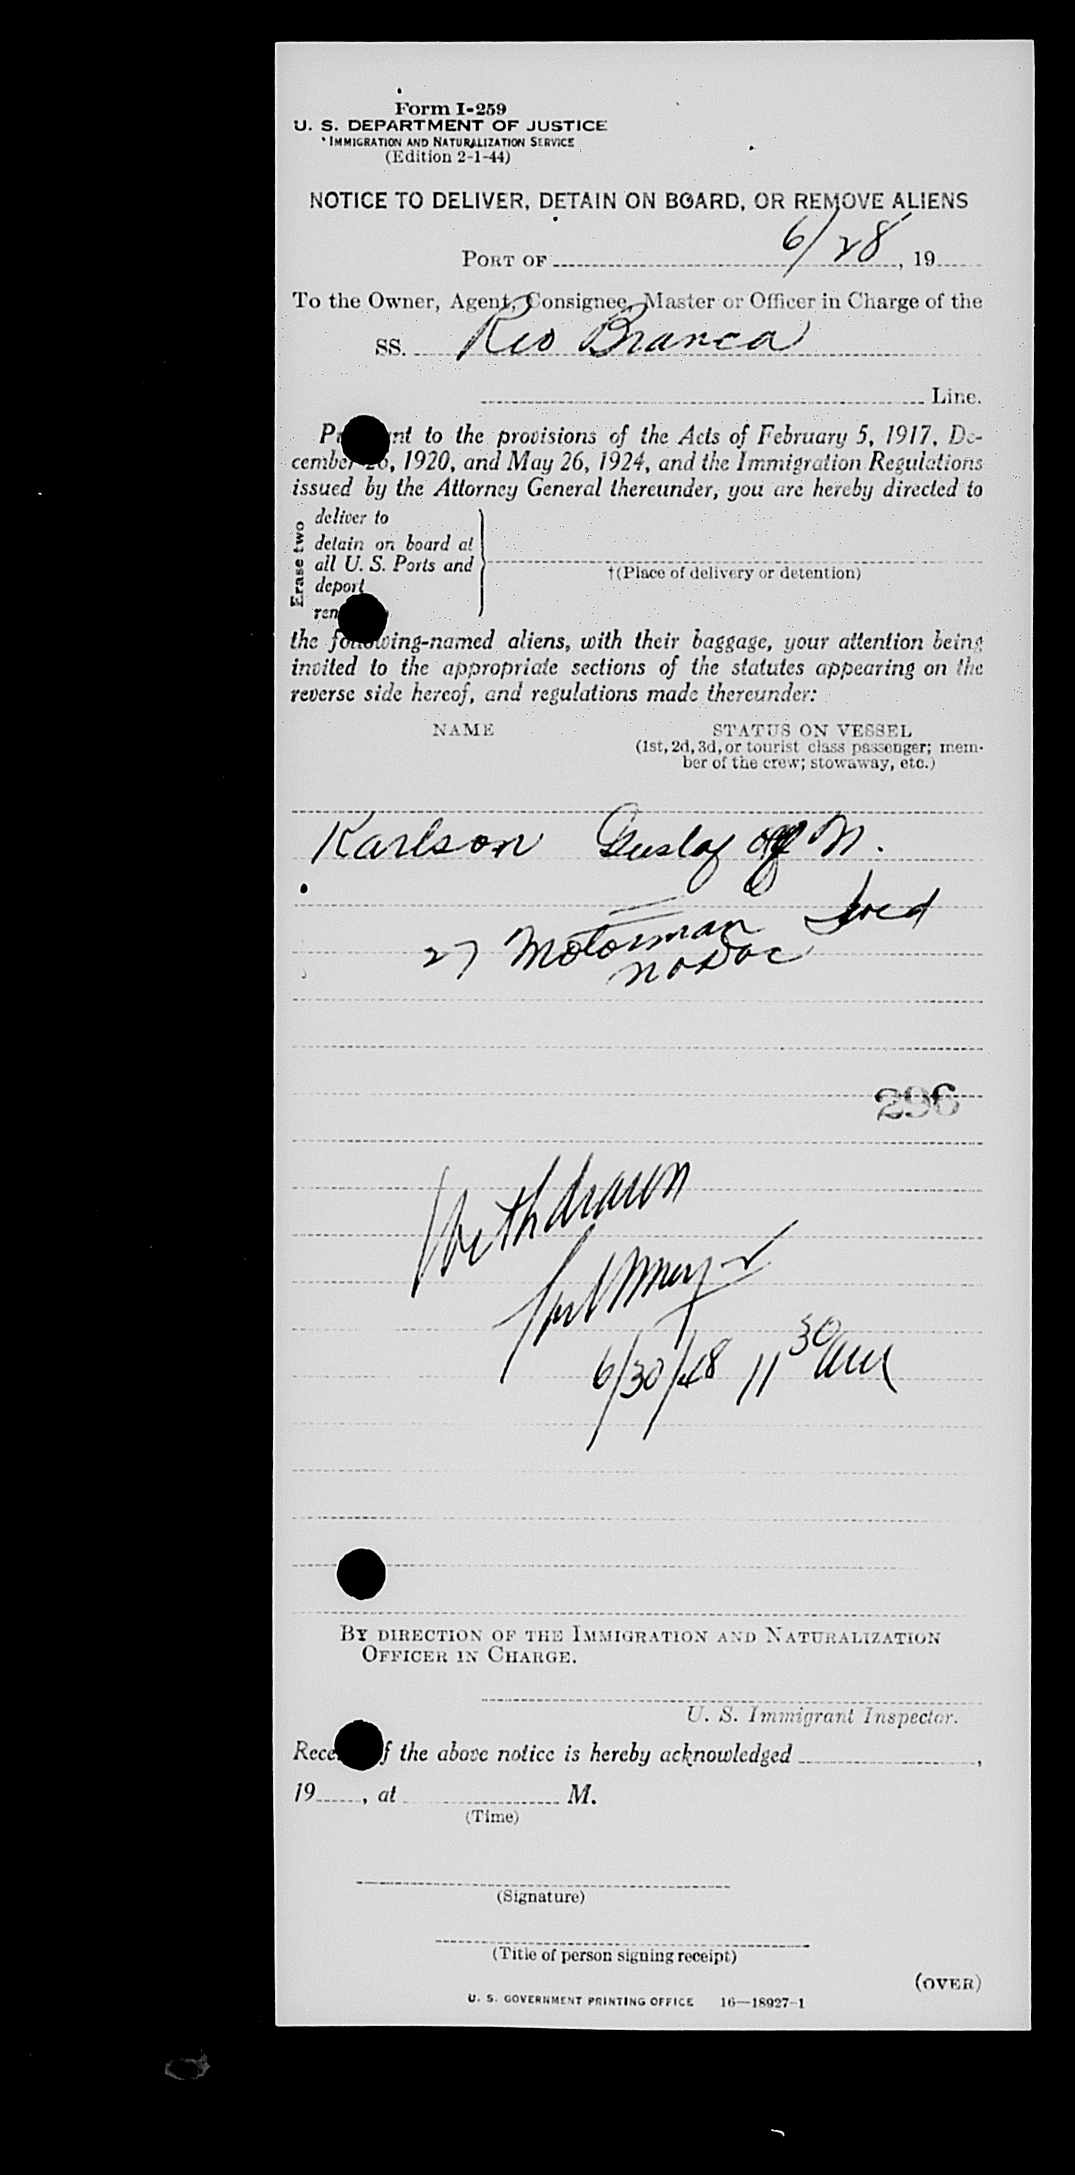 Form I-259
U. S. DEPARTMENT OF JUSTICE
IMMIGRATION AND NATURALIZATION SERVICE
(Edition 2-1-44)
NOTICE TO DELIVER, DETAIN ON BOARD, OR REMOVE ALIENS
PORT OF 6/28, 19
To the Owner, Agent, Consignee, Master or Officer in Charge of the
SS. Rio Branca
Line.
nt to the provisions of the Acts of February 5, 1917, De-
cember 26, 1920, and May 26, 1924, and the Immigration Regulations
issued by the Attorney General thereunder, you are hereby directed to
Erase two
deliver to
detain on board at
all U. S. Ports and
deport
ren
†(Place of delivery or detention)
the following-named aliens, with their baggage, your attention being
invited to the appropriate sections of the statutes appearing on the
reverse side hereof, and regulations made thereunder:
NAME STATUS ON VESSEL
(1st, 2d, 3d, or tourist class passenger; mem-
ber of the crew; stowaway, etc.)
Karlson Gustaf M.
27 Motorman Swed
no Doc
296
Withdrawn
6/30/48 11 30 am
BY DIRECTION OF THE IMMIGRATION AND NATURALIZATION
OFFICER IN CHARGE.
U. S. Immigrant Inspector.
Rece f the above notice is hereby acknowledged ,
19 , at M.
(Time)
(Signature)
(Title of person signing receipt)
(OVER)
U. S. GOVERNMENT PRINTING OFFICE 16—18927-1